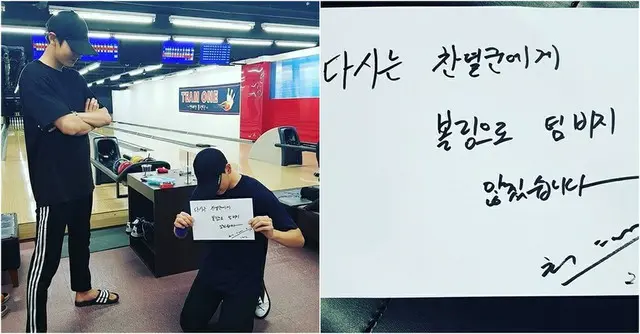 TEAM ONE
다시는 찬열군에게
볼링으로 덤비지
않겠습니다
다시는 찬열군에게
볼링으로 덤비지
않겠습니다